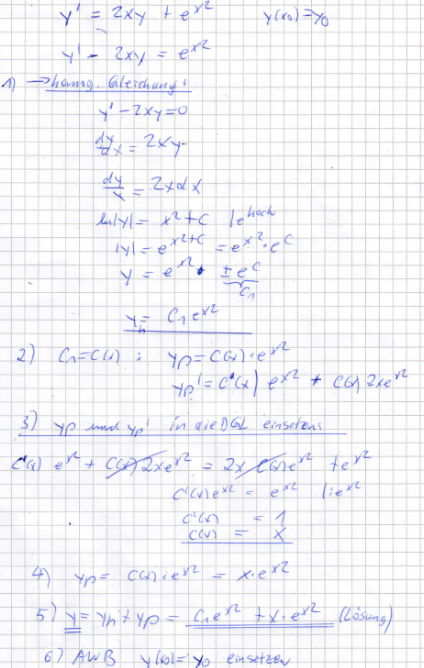 y' = 2xy + e^{x^2}   y(x_0)=y_0
y' - 2xy = e^{x^2}
1) → homog. Gleichung:
y' - 2xy = 0
dy/dx = 2xy
dy/y = 2x dx
ln|y| = x^2 + C   | e^{hoch}
|y| = e^{x^2+C} = e^{x^2} · e^C
y = e^{x^2} · ± e^C
C_1
y_h = C_1 e^{x^2}
2) C_1 = C(x) : y_p = C(x) · e^{x^2}
y_p' = C'(x) e^{x^2} + C(x) 2x e^{x^2}
3) y_p und y_p' in die DGL einsetzen:
C'(x) e^{x^2} + C(x) 2x e^{x^2} = 2x C(x) e^{x^2} + e^{x^2}
C'(x) e^{x^2} = e^{x^2}   |: e^{x^2}
C'(x) = 1
C(x) = x
4) y_p = C(x) · e^{x^2} = x · e^{x^2}
5) y = y_h + y_p = C_1 e^{x^2} + x · e^{x^2} (Lösung)
6) AWB y(x_0) = y_0 einsetzen